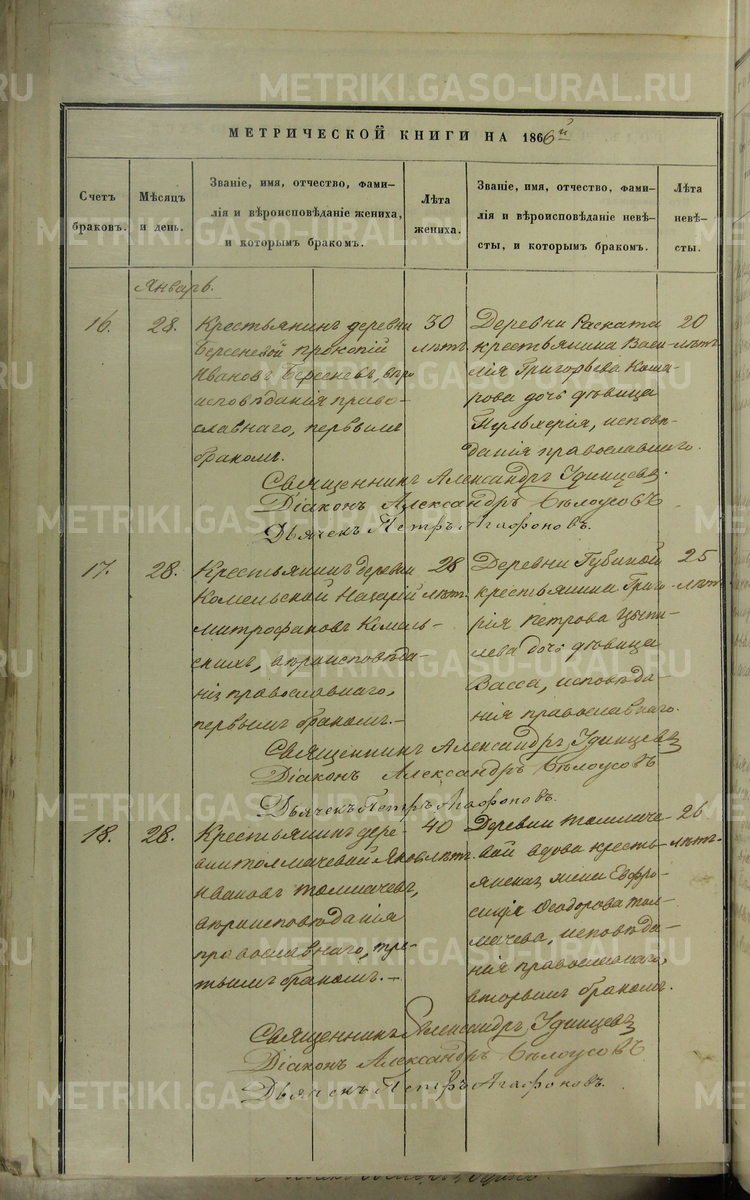 МЕТРИЧЕСКОЙ КНИГИ НА 1866й
Счетъ браковъ.
Мѣсяцъ и день.
Званіе, имя, отчество, фами-
лія и вѣроисповѣданіе жениха,
и которымъ бракомъ.
Лѣта жениха.
Званіе, имя, отчество, фами-
лія и вѣроисповѣданіе невѣ-
сты, и которымъ бракомъ.
Лѣта невѣ-
сты.
Январь.
16.
28.
Крестьянинъ деревни
Берсеневой Прокопій
Ивановъ Берсеневъ, вѣро
исповѣданія право-
славнаго, первымъ
бракомъ.
30
лѣтъ
Деревни Раската
крестьянина Васи-
лія Григорьева Кома-
рова дочь дѣвица
Пульхерія, исповѣ-
данія православнаго.
20
лѣтъ
Священникъ Александръ Удинцевъ.
Діаконъ Александръ Бѣлоусовъ
Дьячекъ Петръ Агафоновъ.
17.
28.
Крестьянинъ деревни
Комельской Назарій
Митрофановъ Комель-
скихъ, вѣроисповѣда-
нія православнаго,
первымъ бракомъ.-
28
лѣтъ.
Деревни Губиной
крестьянина Григо-
рія Петрова Цыпи-
лева дочь дѣвица
Васса, исповѣда-
нія православнаго.
25
лѣтъ
Священникъ Александръ Удинцевъ
Діаконъ Александръ Бѣлоусовъ
Дьячекъ Петръ Агафоновъ.
18.
28.
Крестьянинъ дере-
вни Толмачевой Яковъ
Ивановъ Толмачевъ,
вѣроисповѣданія
православнаго, тре-
тьимъ бракомъ.-
40
лѣтъ.
Деревни Толмаче-
вой вдова кресть-
янская жена Евфро-
синія Ѳеодорова Тол-
мачева, исповѣда-
нія православнаго,
вторымъ бракомъ.
26
лѣтъ.
Священникъ Александръ Удинцевъ
Діаконъ Александръ Бѣлоусовъ
Дьячекъ Петръ Агафоновъ.
METRIKI.GASO-URAL.RU